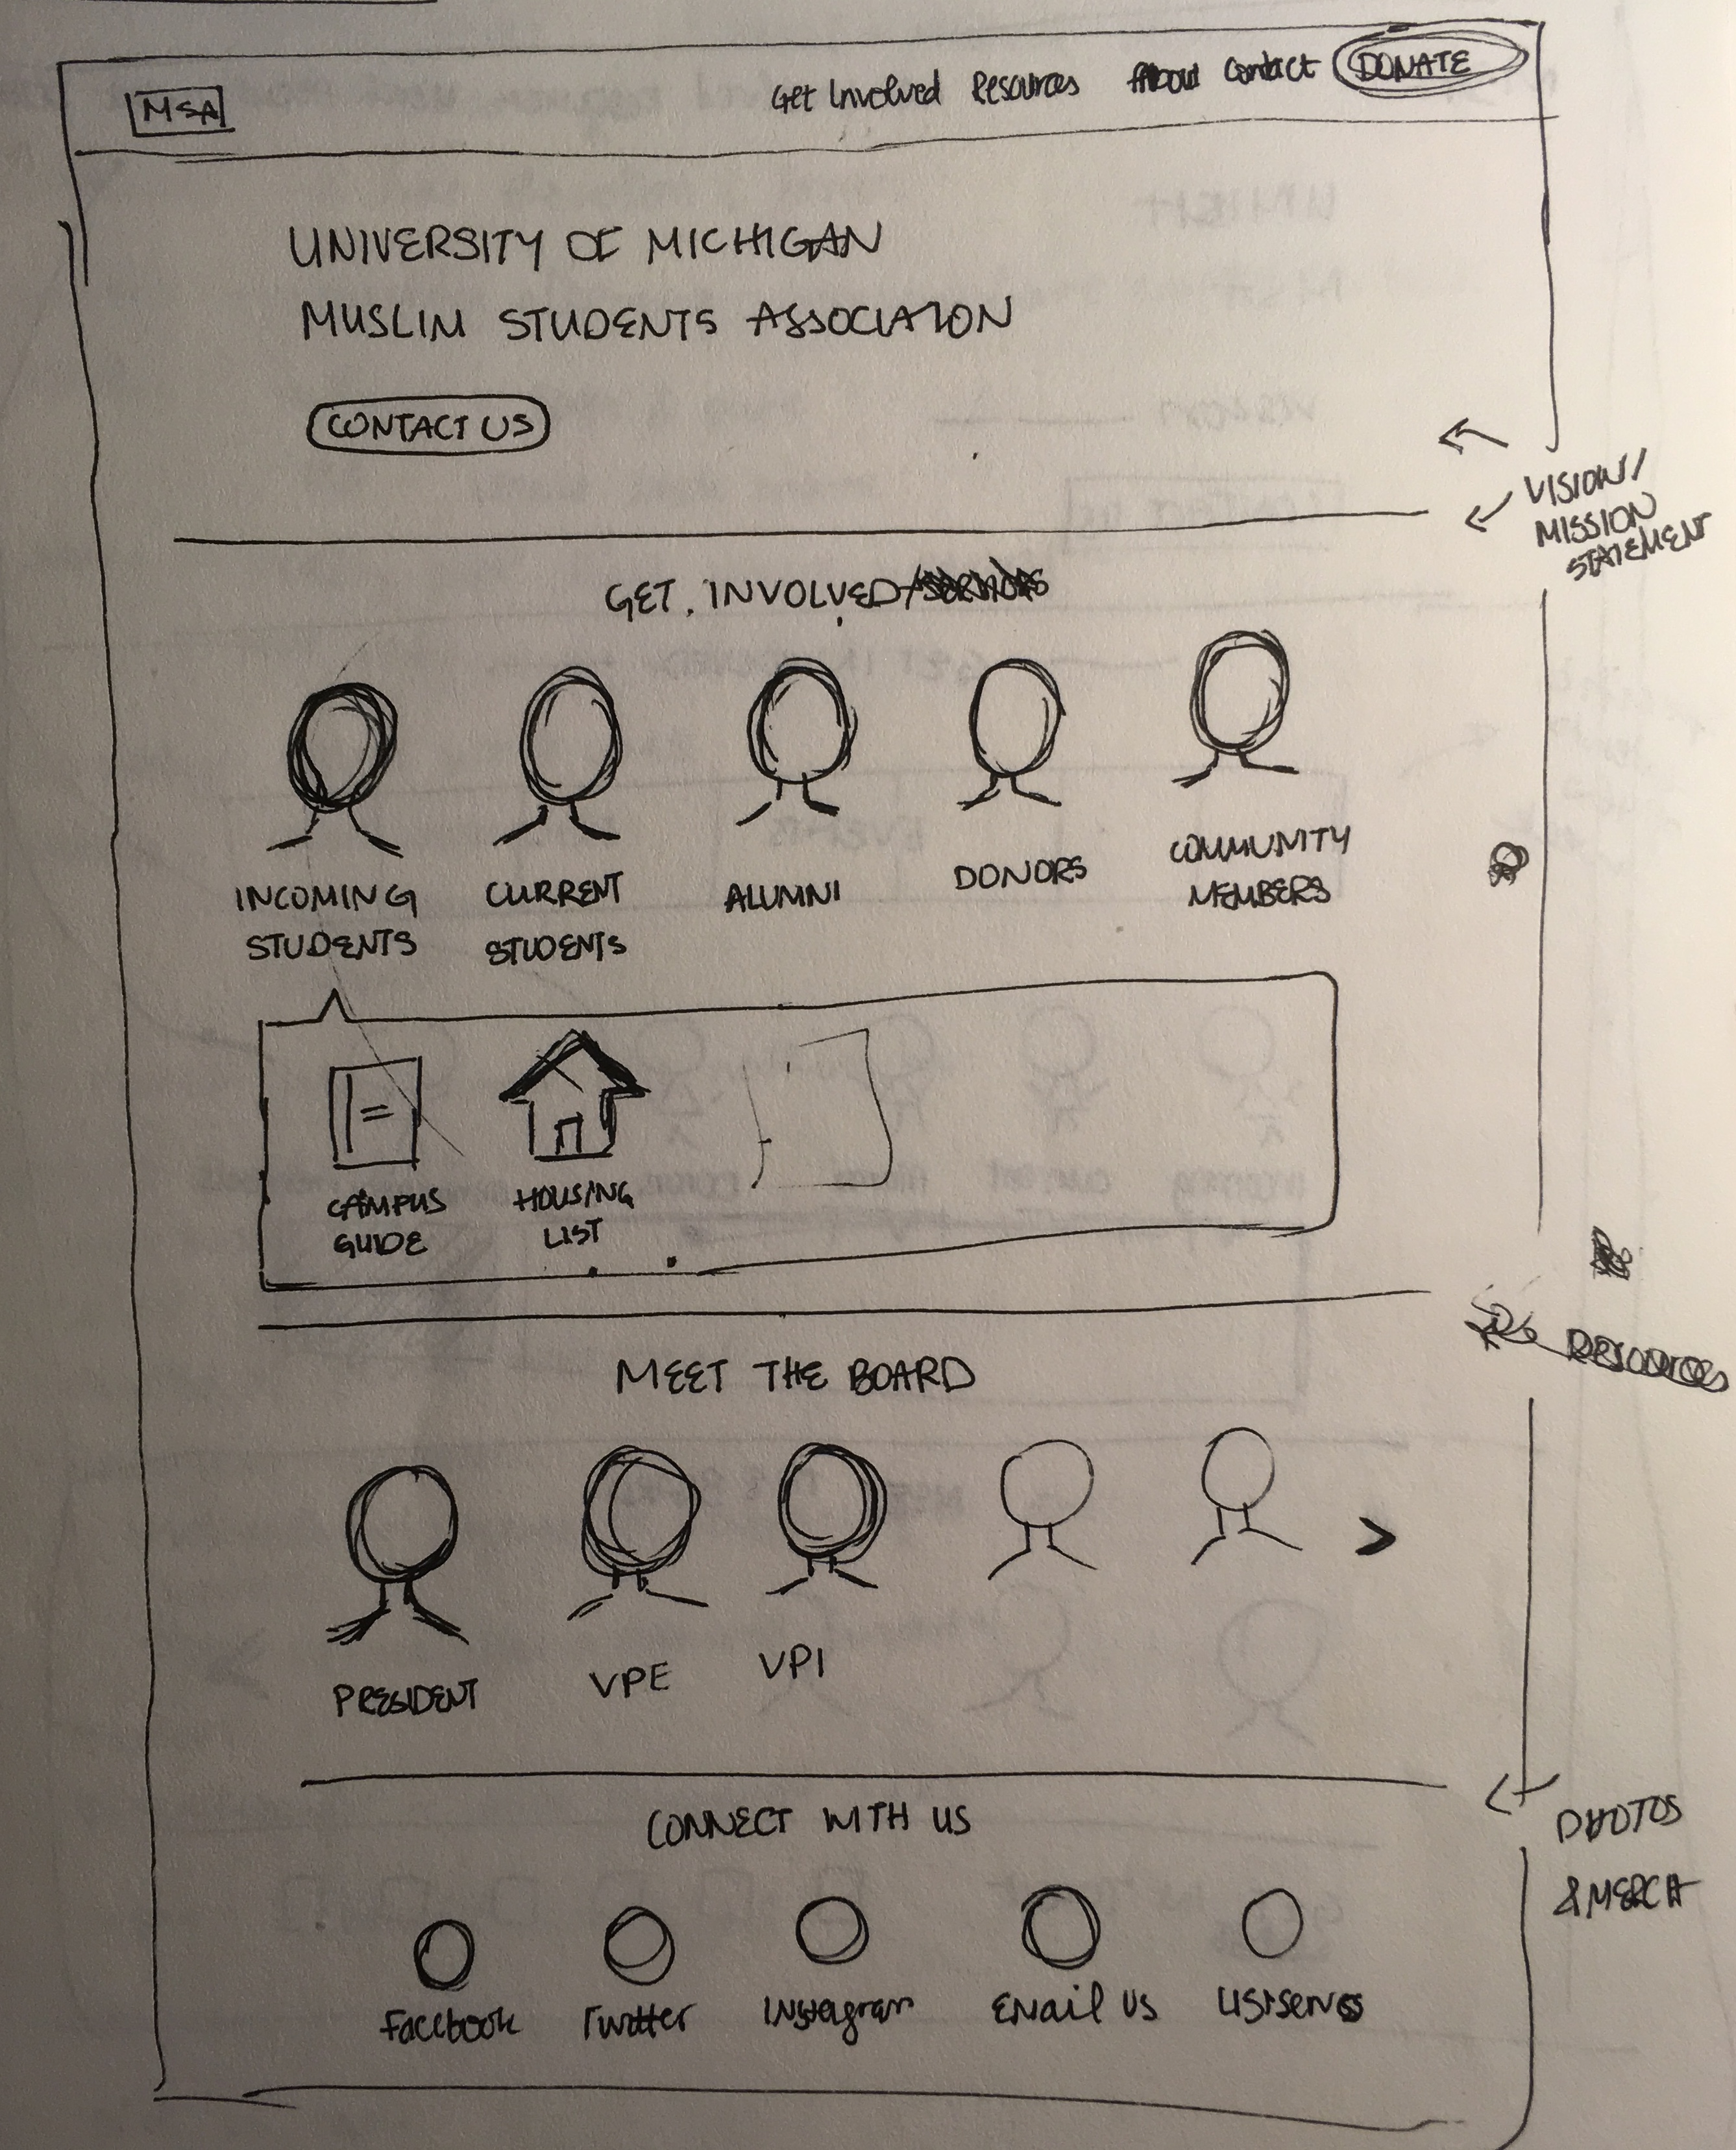 MSA
Get Involved Resources About Contact DONATE
UNIVERSITY OF MICHIGAN
MUSLIM STUDENTS ASSOCIATION
CONTACT US
VISION/
MISSION
STATEMENT
GET INVOLVED/
INCOMING
STUDENTS
CURRENT
STUDENTS
ALUMNI
DONORS
COMMUNITY
MEMBERS
CAMPUS
GUIDE
HOUSING
LIST
RESOURCES
MEET THE BOARD
PRESIDENT
VPE
VPI
>
PHOTOS
& MERCH
CONNECT WITH US
Facebook
Twitter
Instagram
Email Us
Listservs